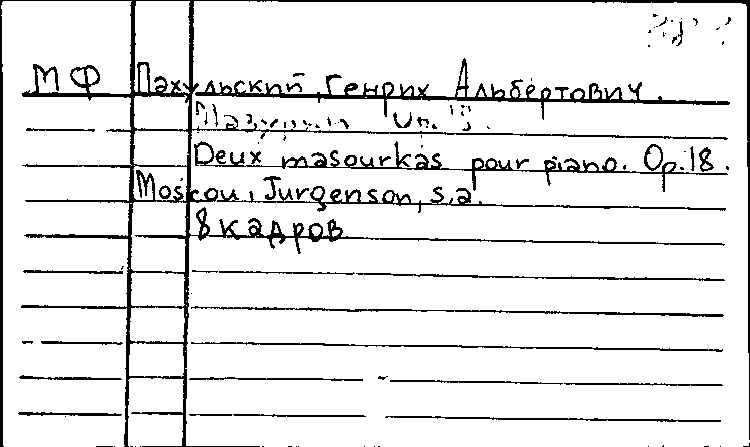 МФ Пахульский, Генрих Альбертович.
Мазурки Op. 18.
Deux masourkas pour piano. Op. 18.
Moscou, Jurgenson, s.a.
8 кадров